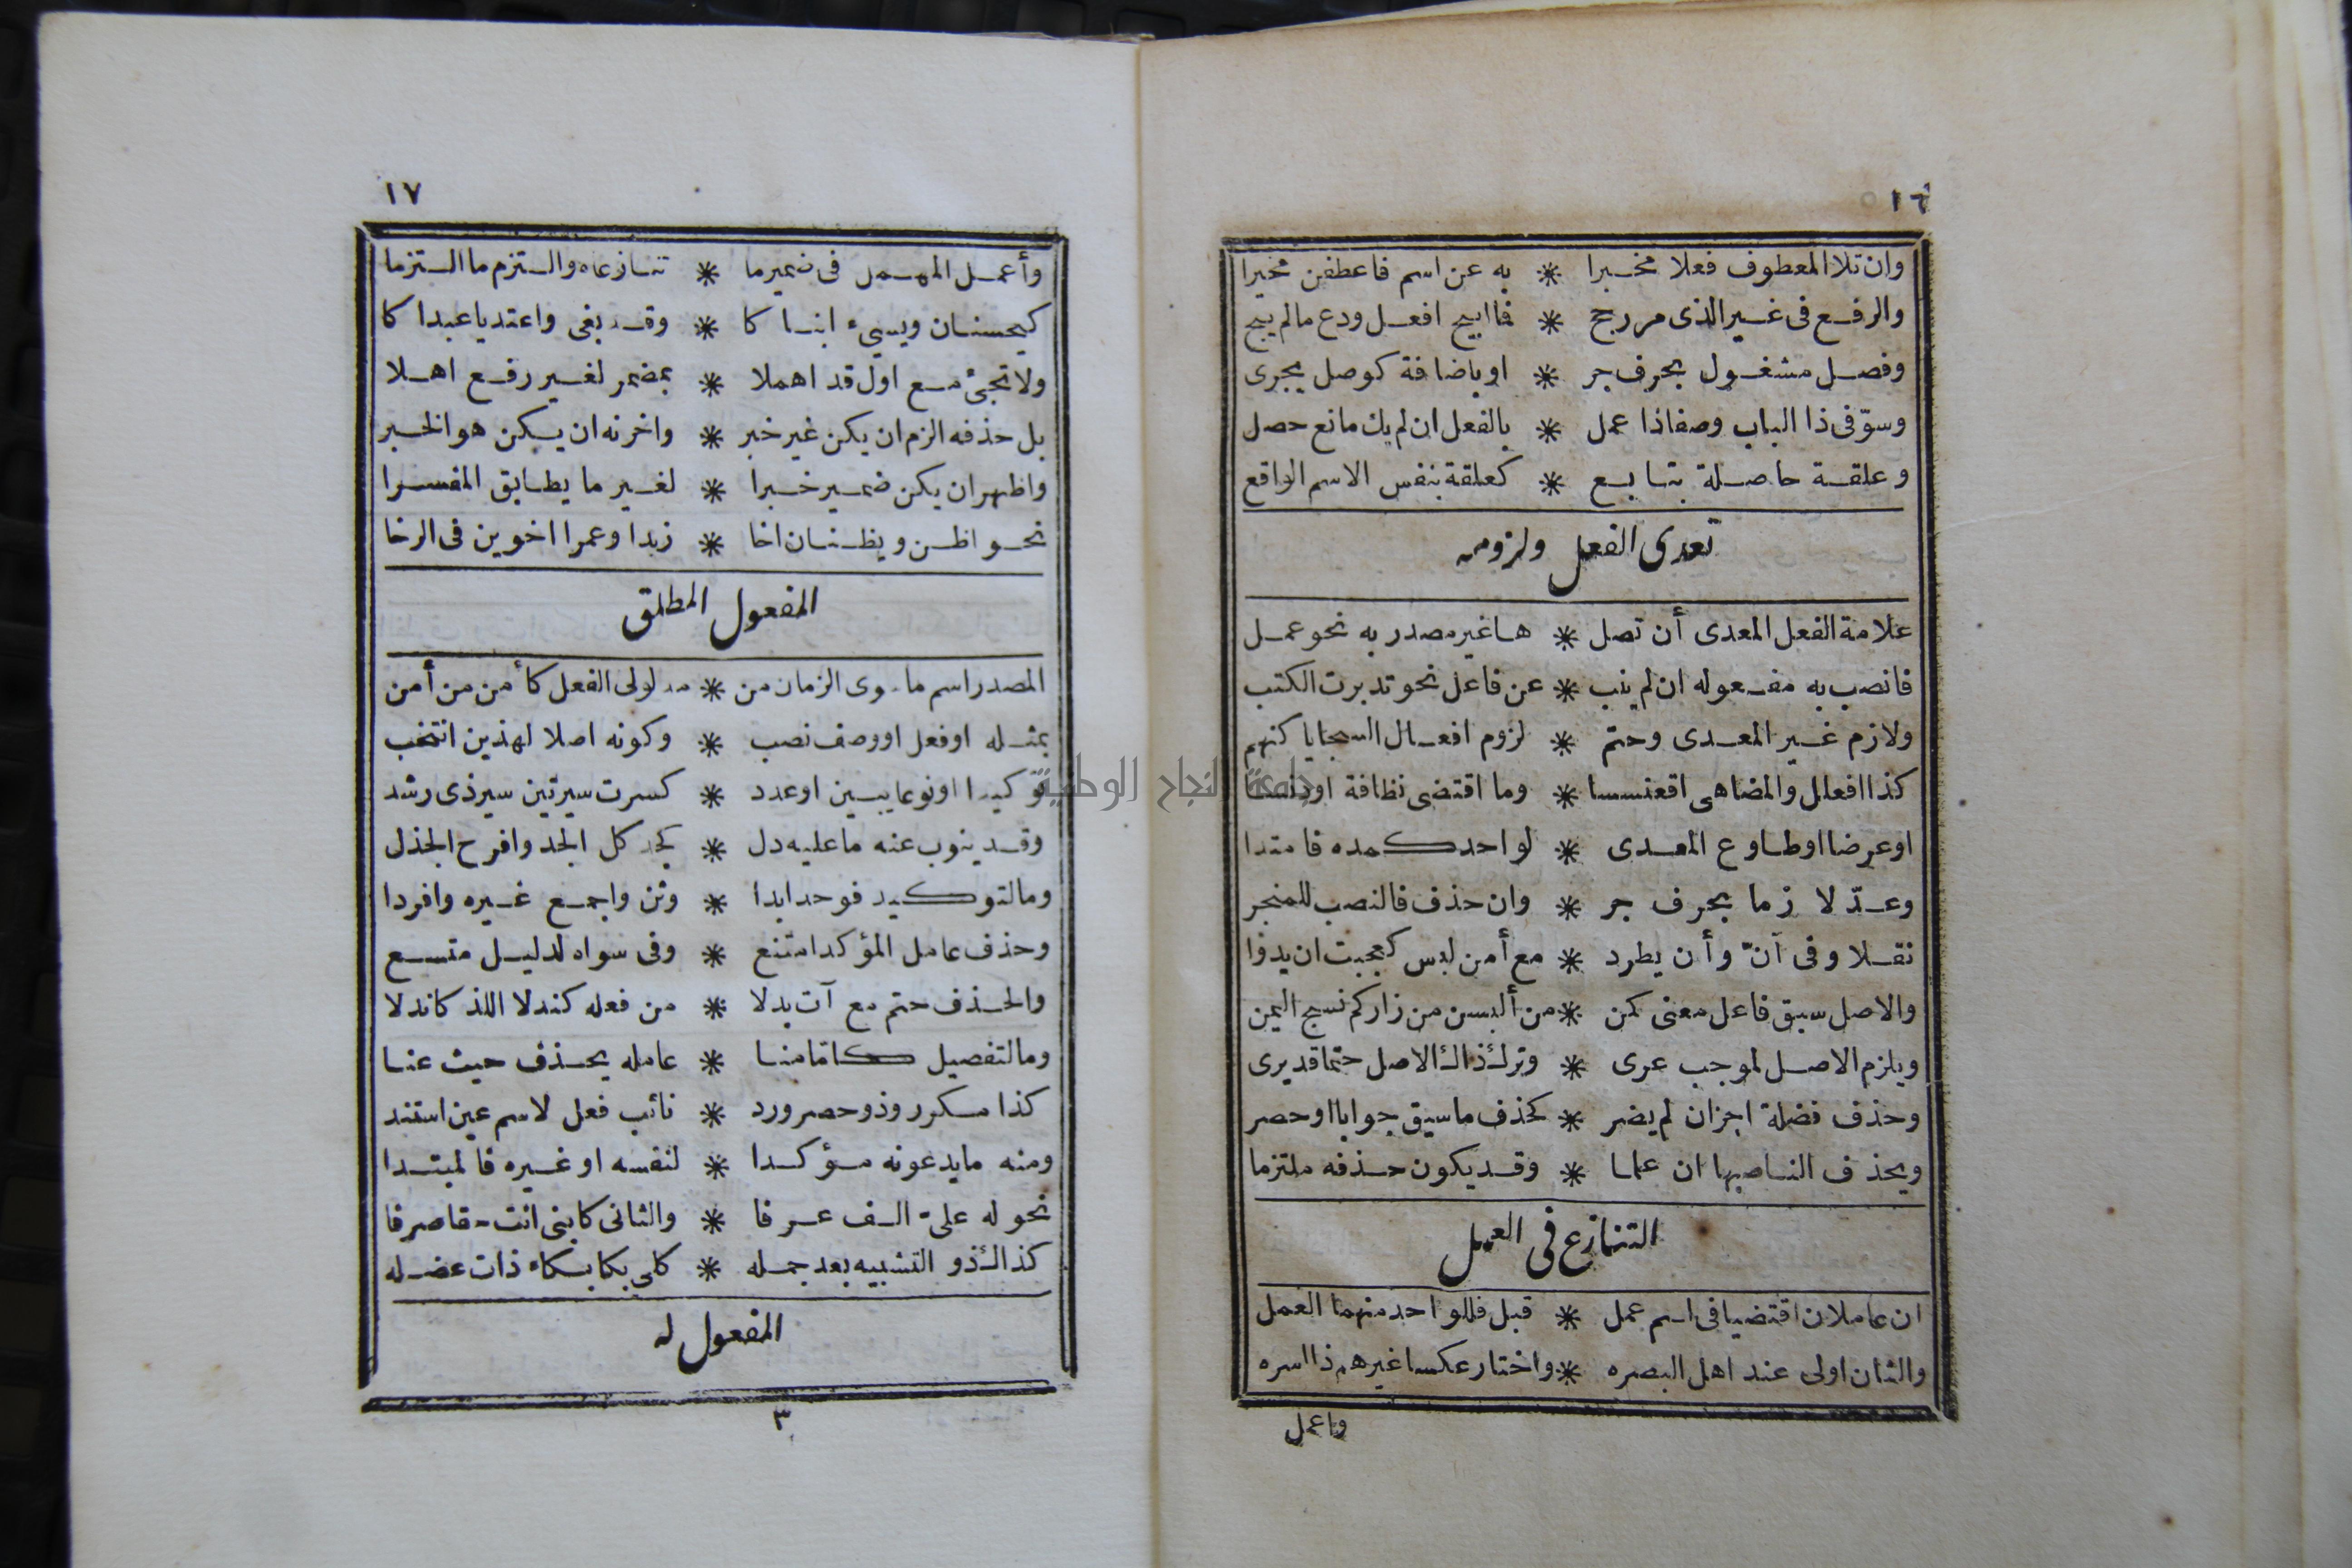 ١٦
وان تلا المعطوف فعلا مخبرا * به عن اسم فاعطفن مخيرا
والرفع فى غير الذى مر رجح * فما ابيح افعل ودع ما لم يبح
وفصل مشغول بحرف جر * او باضافة كوصل يجرى
وسوّ فى ذا الباب وصفا ذا عمل * بالفعل ان لم يك مانع حصل
وعلقة حاصلة بتابع * كعلقة بنفس الاسم الواقع
تعدى الفعل ولزومه
علامة الفعل المعدى أن تصل * ها غير مصدر به نحو عمل
فانصب به مفعوله ان لم ينب * عن فاعل نحو تدبرت الكتب
ولازم غير المعدى وحتم * لزوم افعال السجايا كنهم
كذا افعلل والمضاهى اقعنسسا * وما اقتضى نظافة او دنسا
او عرضا او طاوع المعدى * لواحد كمده فامتدا
وعدّ لازما بحرف جر * وان حذف فالنصب للمنجر
نقلا وفى أنّ وأن يطرد * مع أمن لبس كعجبت ان يدوا
والاصل سبق فاعل معنى كمن * من ألبسن من زاركم نسج اليمن
ويلزم الاصل لموجب عرى * وترك ذاك الاصل حتما قد يرى
وحذف فضلة اجز ان لم يضر * كحذف ما سيق جوابا او حصر
ويحذف الناصبها ان علما * وقد يكون حذفه ملتزما
التنازع فى العمل
ان عاملان اقتضيا فى اسم عمل * قبل فللواحد منهما العمل
والثان اولى عند اهل البصره * واختار عكسا غيرهم ذا اسره
واعمل
١٧
وأعمل المهمل فى ضمير ما * تنازعاه والتزم ما التزما
كيحسنان ويسيء ابنا كا * وقد بغى واعتديا عبدا كا
ولا تجئ مع اول قد اهملا * بمضمر لغير رفع اهلا
بل حذفه الزم ان يكن غير خبر * واخرنه ان يكن هو الخبر
واظهر ان يكن ضمير خبرا * لغير ما يطابق المفسرا
نحو اظن ويظنان اخا * زيدا وعمرا اخوين فى الرخا
المفعول المطلق
المصدر اسم ما سوى الزمان من * مدلولى الفعل كأمن من أمن
بمثله او فعل او وصف نصب * وكونه اصلا لهذين انتخب
توكيدا او نوعا يبين او عدد * كسرت سيرتين سير ذى رشد
وقد ينوب عنه ما عليه دل * كجد كل الجد وافرح الجذل
وما لتوكيد فوحد ابدا * وثن واجمع غيره وافردا
وحذف عامل المؤكد امتنع * وفى سواه لدليل متسع
والحذف حتم مع آت بدلا * من فعله كندلا اللذ كاندلا
وما لتفصيل كامّا منا * عامله يحذف حيث عنا
كذا مكرر وذو حصر ورد * نائب فعل لاسم عين استند
ومنه ما يدعونه مؤكدا * لنفسه او غيره فالمبتدا
نحو له علىّ الف عرفا * والثانى كابنى انت حقا صرفا
كذاك ذو التشبيه بعد جمله * كلى بكا بكاء ذات عضله
المفعول له
٣
جامعة النجاح الوطنية